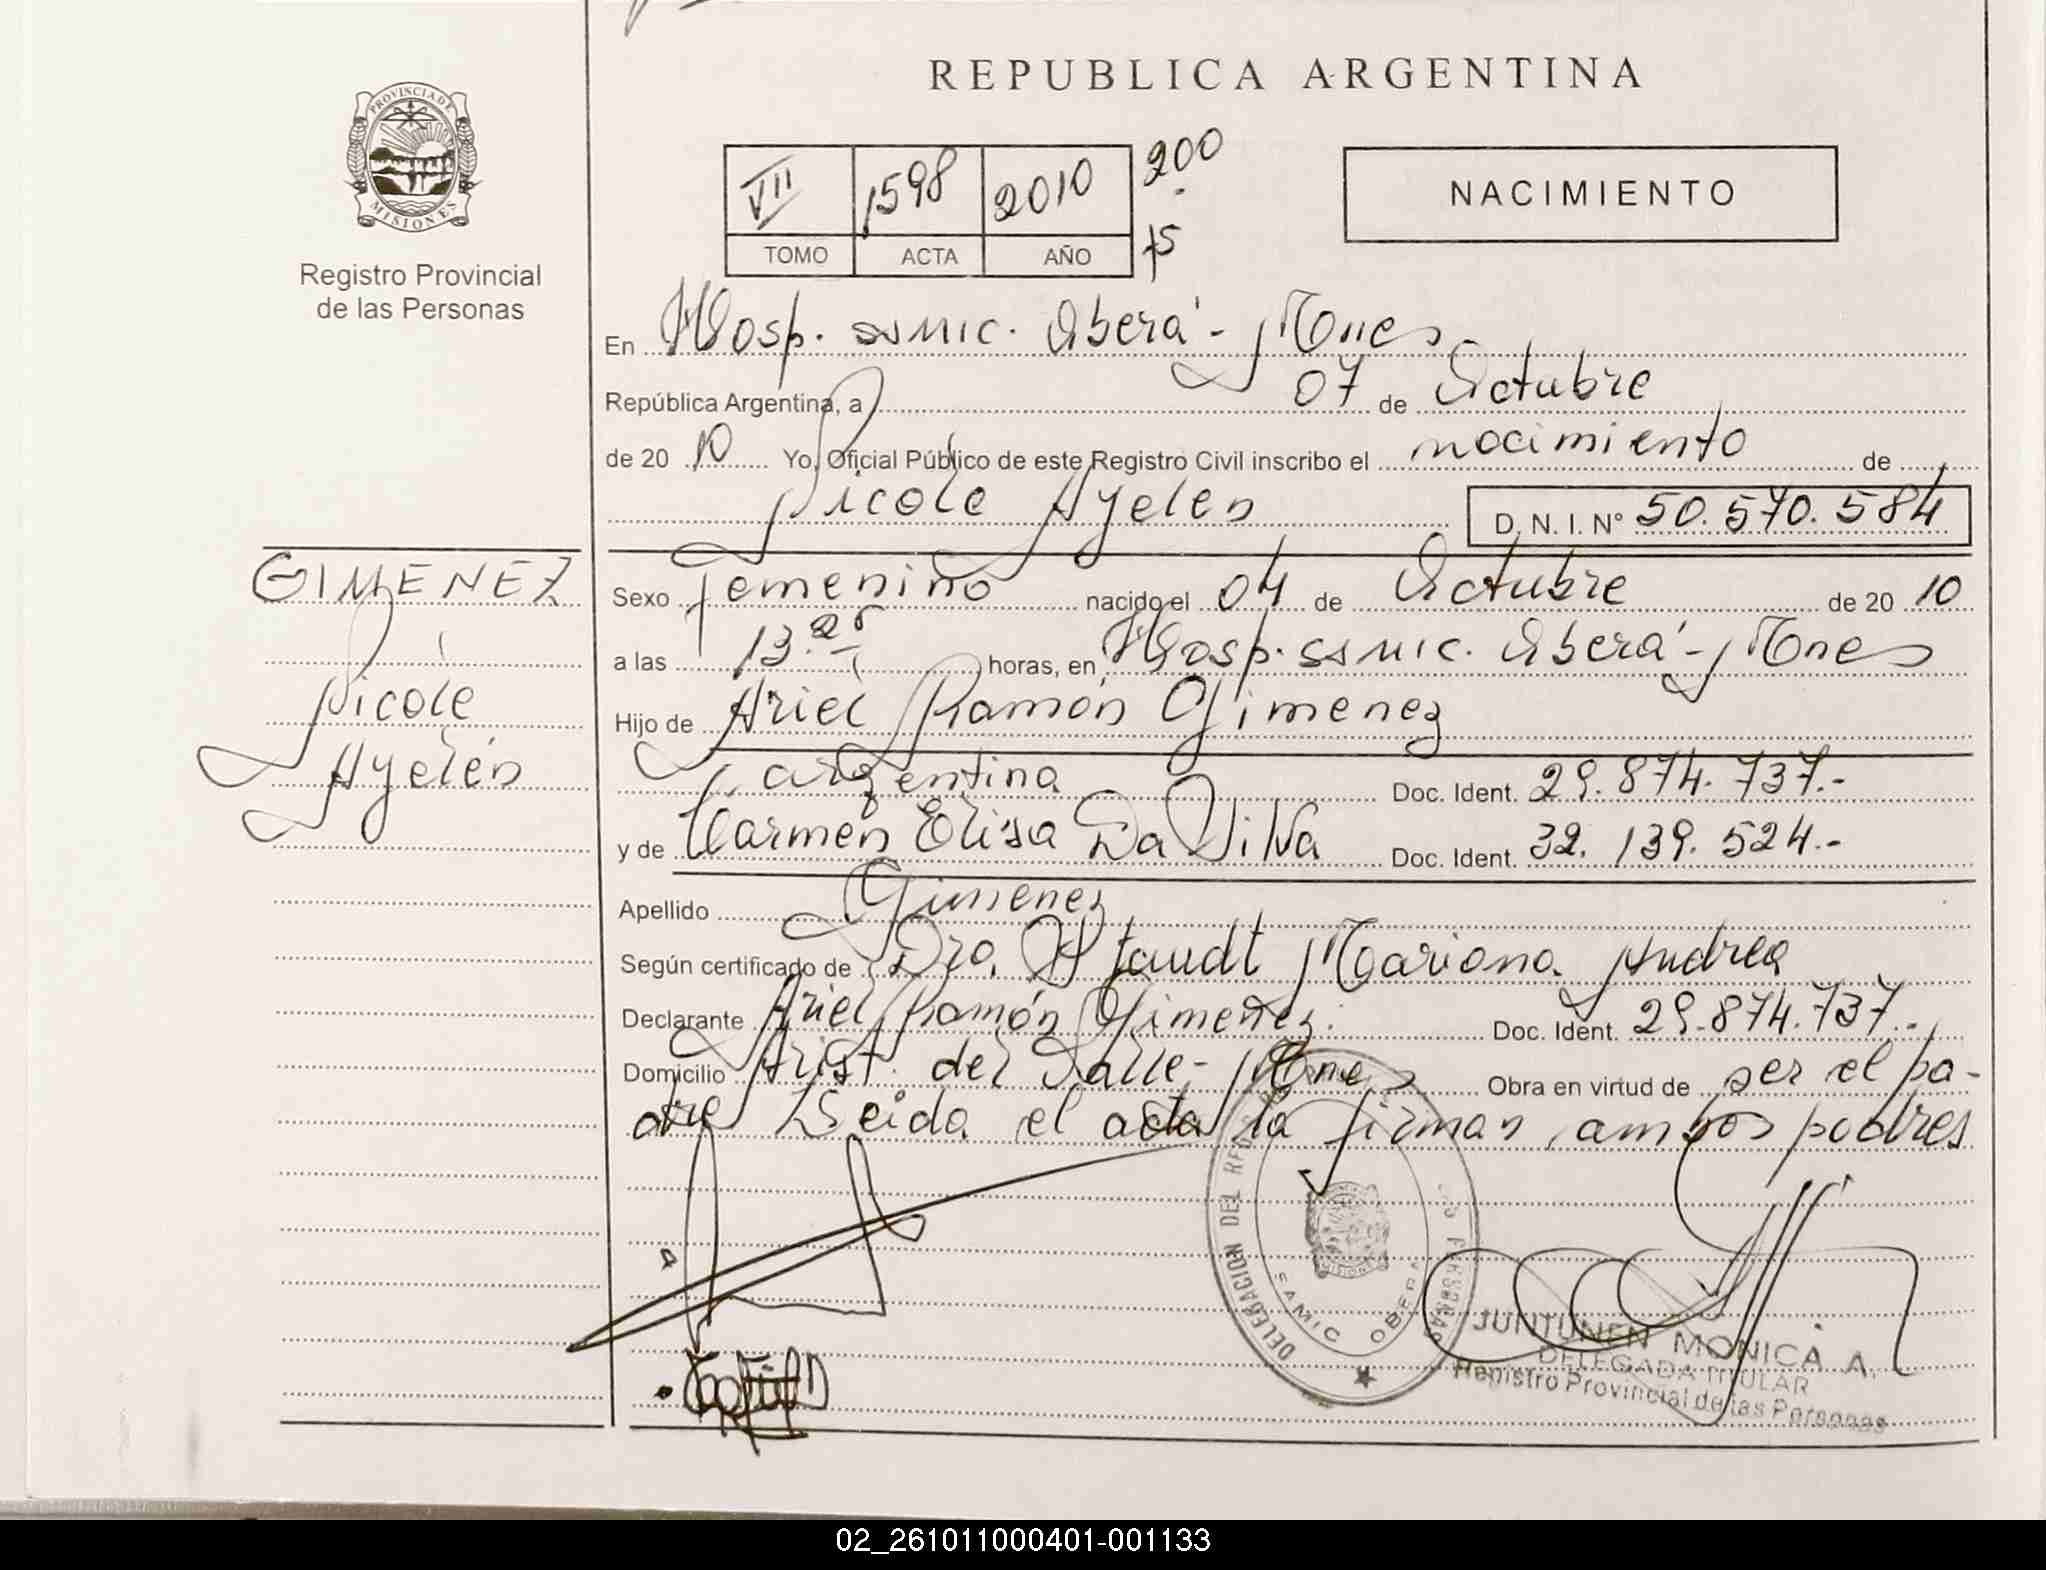 REPUBLICA ARGENTINA
PROVINCIA DE
MISIONES
Registro Provincial
de las Personas
VII 1598 2010 200
TOMO ACTA AÑO 75
NACIMIENTO
En Hosp. SAMIC. Oberá - Mnes
República Argentina, a 07 de Octubre
de 20 10 Yo, Oficial Público de este Registro Civil inscribo el nacimiento de
Nicole Ayelen D. N. I. Nº 50.570.584
GIMENEZ
Nicole
Ayelén
Sexo femenino nacido el 04 de Octubre de 20 10
a las 13. horas, en Hosp. SAMIC. Oberá - Mnes
Hijo de Ariel Ramón Gimenez
argentina Doc. Ident. 29.874.737.-
y de Carmen Elisa Da Silva Doc. Ident. 32.139.524.-
Apellido Gimenez
Según certificado de Dra. Staudt Mariana Andrea
Declarante Ariel Ramón Gimenez. Doc. Ident. 29.874.737.-
Domicilio Arist. del Valle - Mnes Obra en virtud de ser el pa-
dre Leida el acta la firman ambos padres
DELEGACION DEL REG PERSONAS
SAMIC OBERA
MISIONES
JUNTUNEN MONICA A.
DELEGADA TITULAR
Registro Provincial de las Personas
02_261011000401-001133